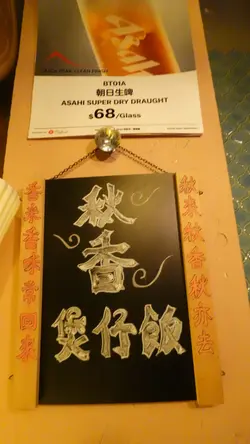 BT01A
朝日生啤
ASAHI SUPER DRY DRAUGHT
$68/Glass
秋香
煲仔飯
秋來秋香秋亦去
香來香味常回來